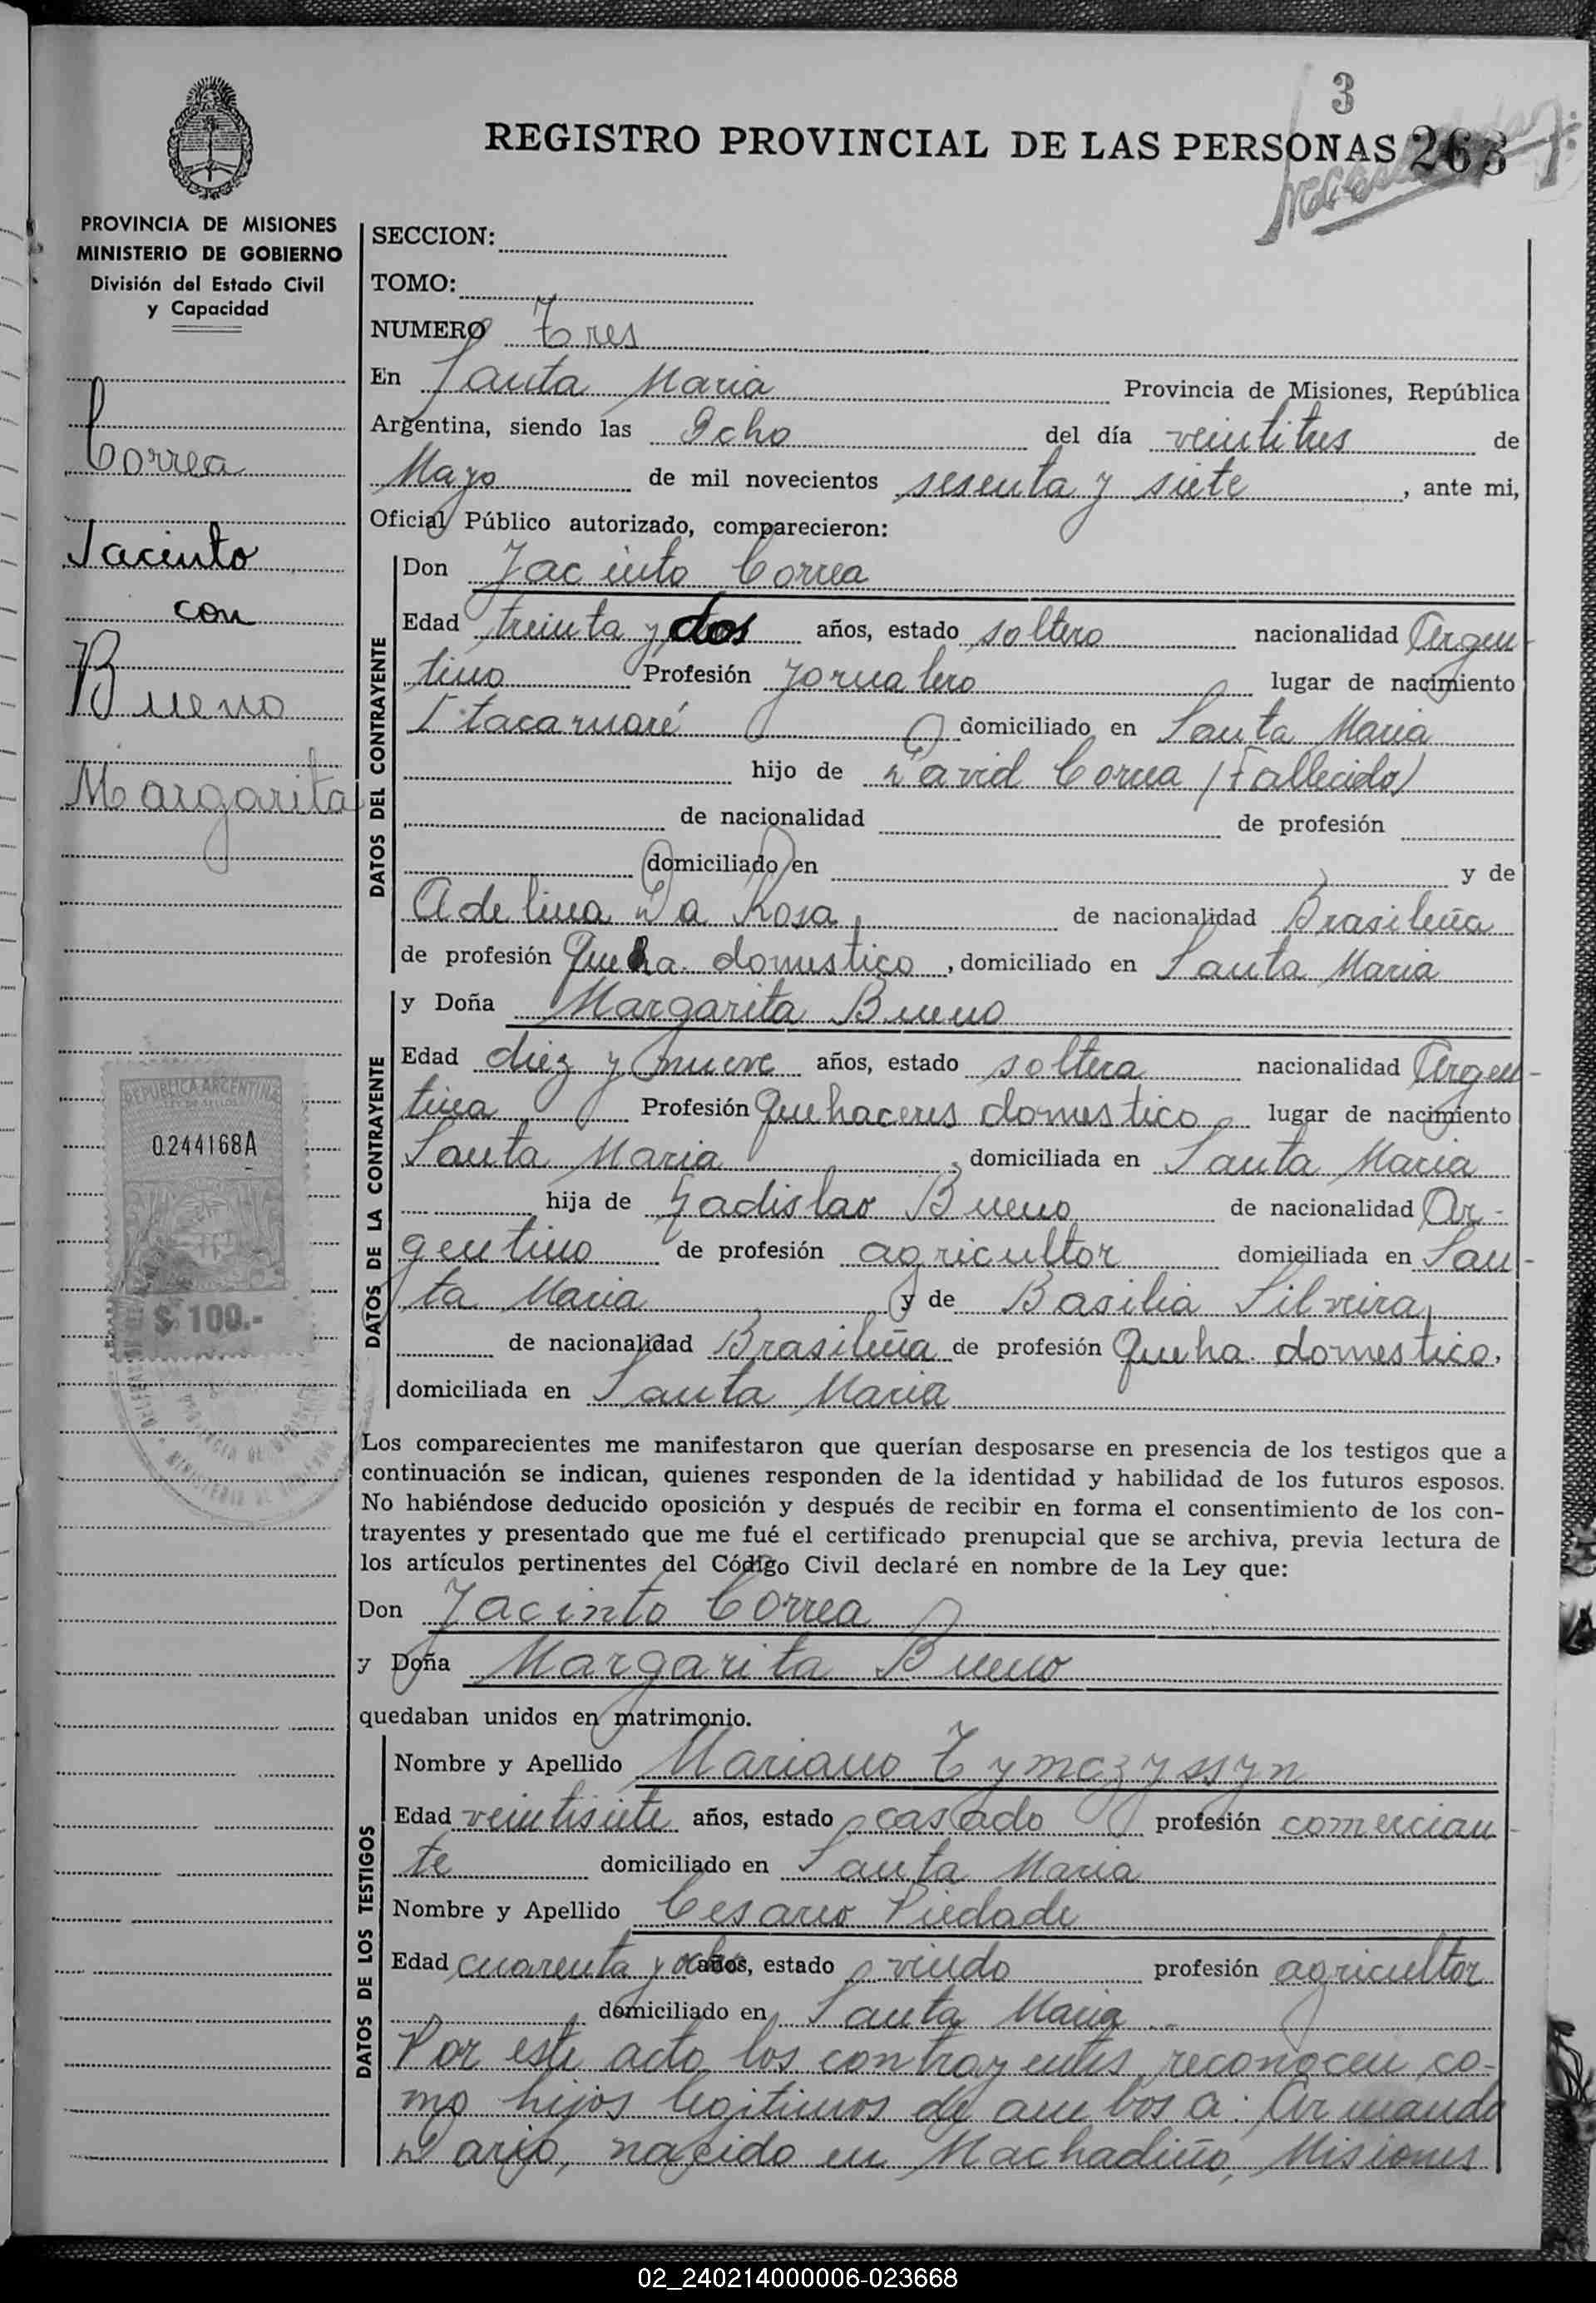 3
REGISTRO PROVINCIAL DE LAS PERSONAS 263
PROVINCIA DE MISIONES
MINISTERIO DE GOBIERNO
División del Estado Civil
y Capacidad
Correa
Jacinto
con
Bueno
Margarita
REPUBLICA ARGENTINA
0.244168A
$ 100.-
SECCION:
TOMO:
NUMERO Tres
En Santa Maria Provincia de Misiones, República
Argentina, siendo las Ocho del día veintitres de
Mayo de mil novecientos sesenta y siete, ante mi,
Oficial Público autorizado, comparecieron:
DATOS DEL CONTRAYENTE
Don Jacinto Correa
Edad treinta y dos años, estado soltero nacionalidad Argen
tino Profesión Jornalero lugar de nacimiento
Itacaruaré domiciliado en Santa Maria
hijo de David Correa (Fallecido)
de nacionalidad de profesión
domiciliado en y de
Adelina Da Rosa, de nacionalidad Brasileña
de profesión Queha. domestico, domiciliado en Santa Maria
DATOS DE LA CONTRAYENTE
y Doña Margarita Bueno
Edad diez y nueve años, estado soltera nacionalidad Argen-
tina Profesión Quehaceres domestico lugar de nacimiento
Santa Maria, domiciliada en Santa Maria
hija de Ladislao Bueno de nacionalidad Ar-
gentino de profesión agricultor domiciliada en San-
ta Maria y de Basilia Silveira,
de nacionalidad Brasileña de profesión Queha. domestico,
domiciliada en Santa Maria
Los comparecientes me manifestaron que querían desposarse en presencia de los testigos que a
continuación se indican, quienes responden de la identidad y habilidad de los futuros esposos.
No habiéndose deducido oposición y después de recibir en forma el consentimiento de los con-
trayentes y presentado que me fué el certificado prenupcial que se archiva, previa lectura de
los artículos pertinentes del Código Civil declaré en nombre de la Ley que:
Don Jacinto Correa
y Doña Margarita Bueno
quedaban unidos en matrimonio.
DATOS DE LOS TESTIGOS
Nombre y Apellido Mariano Tymczyssyn
Edad veintisiete años, estado casado profesión comercian-
te domiciliado en Santa Maria
Nombre y Apellido Cesareo Piedade
Edad cuarenta y ocho años, estado viudo profesión agricultor
domiciliado en Santa Maria
Por este acto los contrayentes reconocen co-
mo hijos legitimos de ambos a: Armando
Dario, nacido en Machadiño, Misiones
02_240214000006-023668